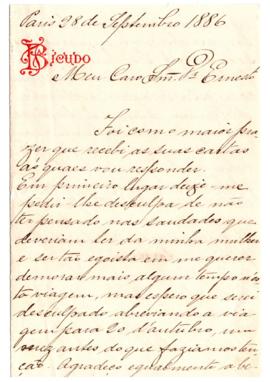 Paris 28 de Septembro 1886
Bicudo
Meu Caro Snr. Dr. Ernesto
Foi com o maior pra
zer que recebi as suas cartas
ás quaes vou responder.
Em primeiro lugar deixe-me
pedir-lhe desculpa de não
ter pensado nas saudades que
deveriam ter da minha mulher
e ser tão egoista em me querer
demorar mais algum tempo n'es
ta viagem, mas espero que serei
desculpado abreviando a via
gem para 20 d'outubro, um
mez antes do que faziamos ten
ção. Agradeço egualmente a be-